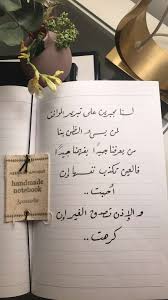 لسنا مجبرين على تبرير المواقف
لمن يسيء الظن بنا
من يعرفنا جيدًا يفهمنا جيدًا
فالعين تكذب نفسها إن
أحبت..
و الأذن تصدق الغير إن
كرهت..
handmade
notebook